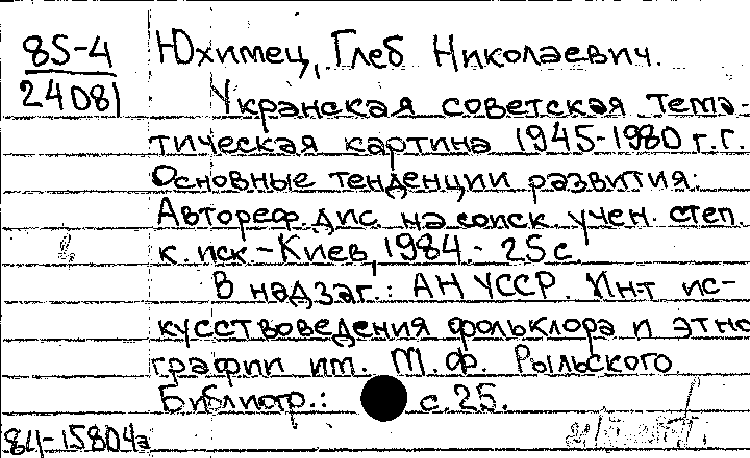 85-4
24081
Юхимец, Глеб Николаевич.
Укранская советская тема-
тическая картина 1945-1980 г.г.
Основные тенденции развития:
Автореф. дис. на соиск. учен. степ.
к. иск. - Киев, 1984. - 25 с.
В надзаг.: АН УССР. Ин-т ис-
кусствоведения фольклора и этно
графии им. М. Ф. Рыльского
Библиогр.: с. 25.
84-15804а